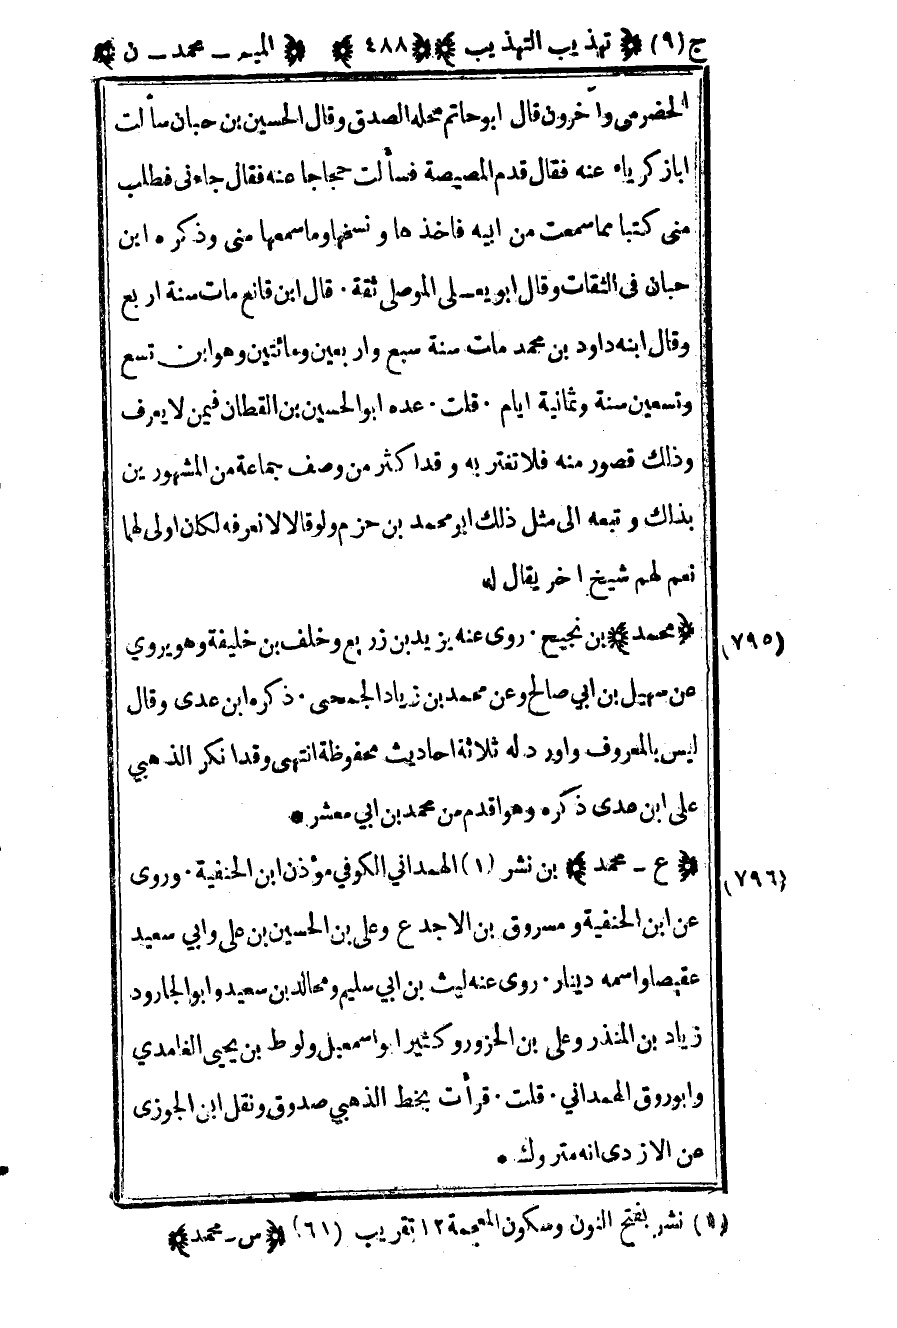 ج (٩) ﴿ تهذيب التهذيب ﴾ ﴿ ٤٨٨ ﴾ ﴿ الميم - محمد - ن ﴾
الحضرمى وآخرون قال ابو حاتم محله الصدق وقال الحسين بن حبان سألت
ابا زكرياء عنه فقال قدم المصيصة فسألت حجاجا عنه فقال جاءنى فطلب
منى كتبا مما سمعت من ابيه فاخذ ها و نسخها وما سمعها منى وذكره ابن
حبان فى الثقات وقال ابو يعلى الموصلى ثقة · قال ابن قانع مات سنة اربع
وقال ابنه داود بن محمد مات سنة سبع واربعين ومائتين وهو ابن تسع
وتسعين سنة وثمانية ايام · قلت · عده ابو الحسين بن القطان فيمن لا يعرف
وذلك قصور منه فلا تغتر به وقد اكثر من وصف جماعة من المشهورين
بذلك و تبعه الى مثل ذلك ابو محمد بن حزم ولو قالا لا نعرفه لكان اولى لهما
نعم لهم شيخ اخر يقال له
(٧٩٥) ﴿ محمد ﴾ بن نجيح · روى عنه يزيد بن زريع وخلف بن خليفة وهو يروي
عن سهيل بن ابي صالح وعن محمد بن زياد الجمحى · ذكره ابن عدى وقال
ليس بالمعروف واورد له ثلاثة احاديث محفوظة انتهى وقد انكر الذهبي
على ابن عدى ذكره وهو اقدم من محمد بن ابي معشر •
(٧٩٦) ﴿ ع - محمد ﴾ بن نشر (١) الهمداني الكوفي مؤذن ابن الحنفية · وروى
عن ابن الحنفية و مسروق بن الاجدع وعلى بن الحسين بن على وابي سعيد
عقيصا واسمه دينار · روى عنه ليث بن ابي سليم ومحالد بن سعيد وابو الجارود
زياد بن المنذر وعلى بن الحزور وكثير ابو اسمعيل ولوط بن يحيى الغامدي
وابو روق الهمداني · قلت · قرأت بخط الذهبي صدوق ونقل ابن الجوزى
عن الازدى انه متروك •
(١) نشر بفتح النون وسكون المعجمة ١٢ تقريب (٦١) ﴿ س - محمد ﴾